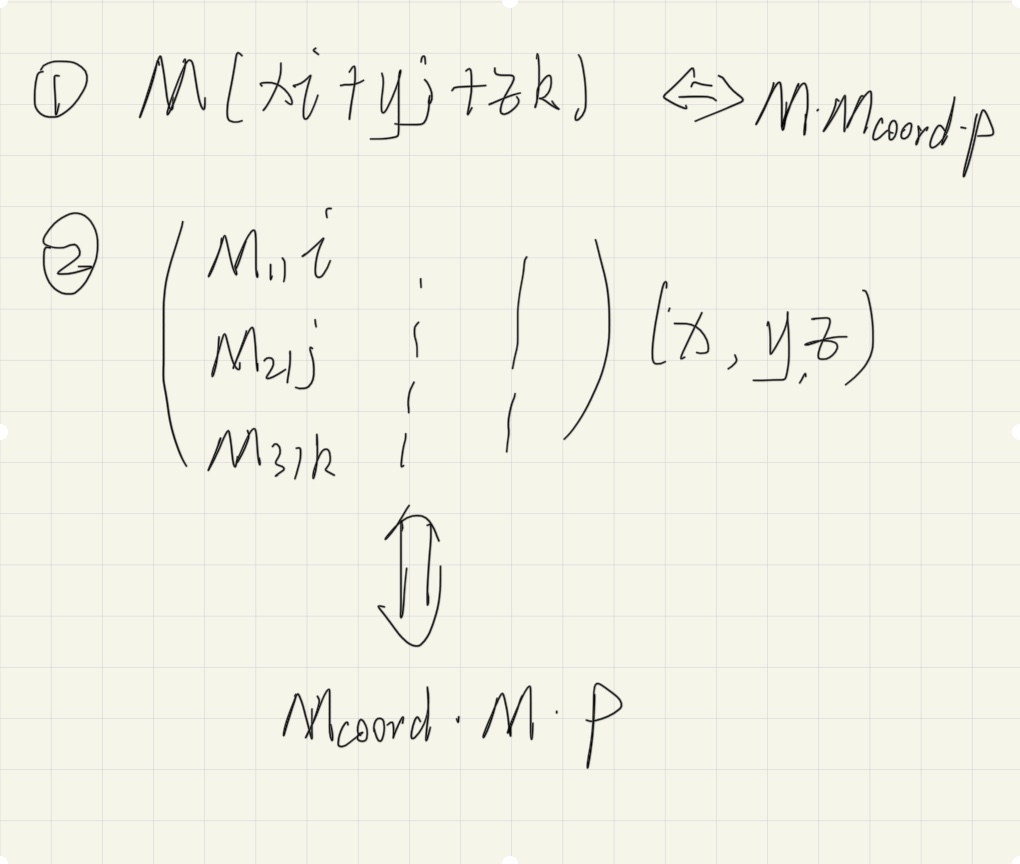 ① M(xi+yj+zk) ⇔ M·Mcoord·P
② (M11i
M21j
M31k) (x, y, z)
⇕
Mcoord · M · P